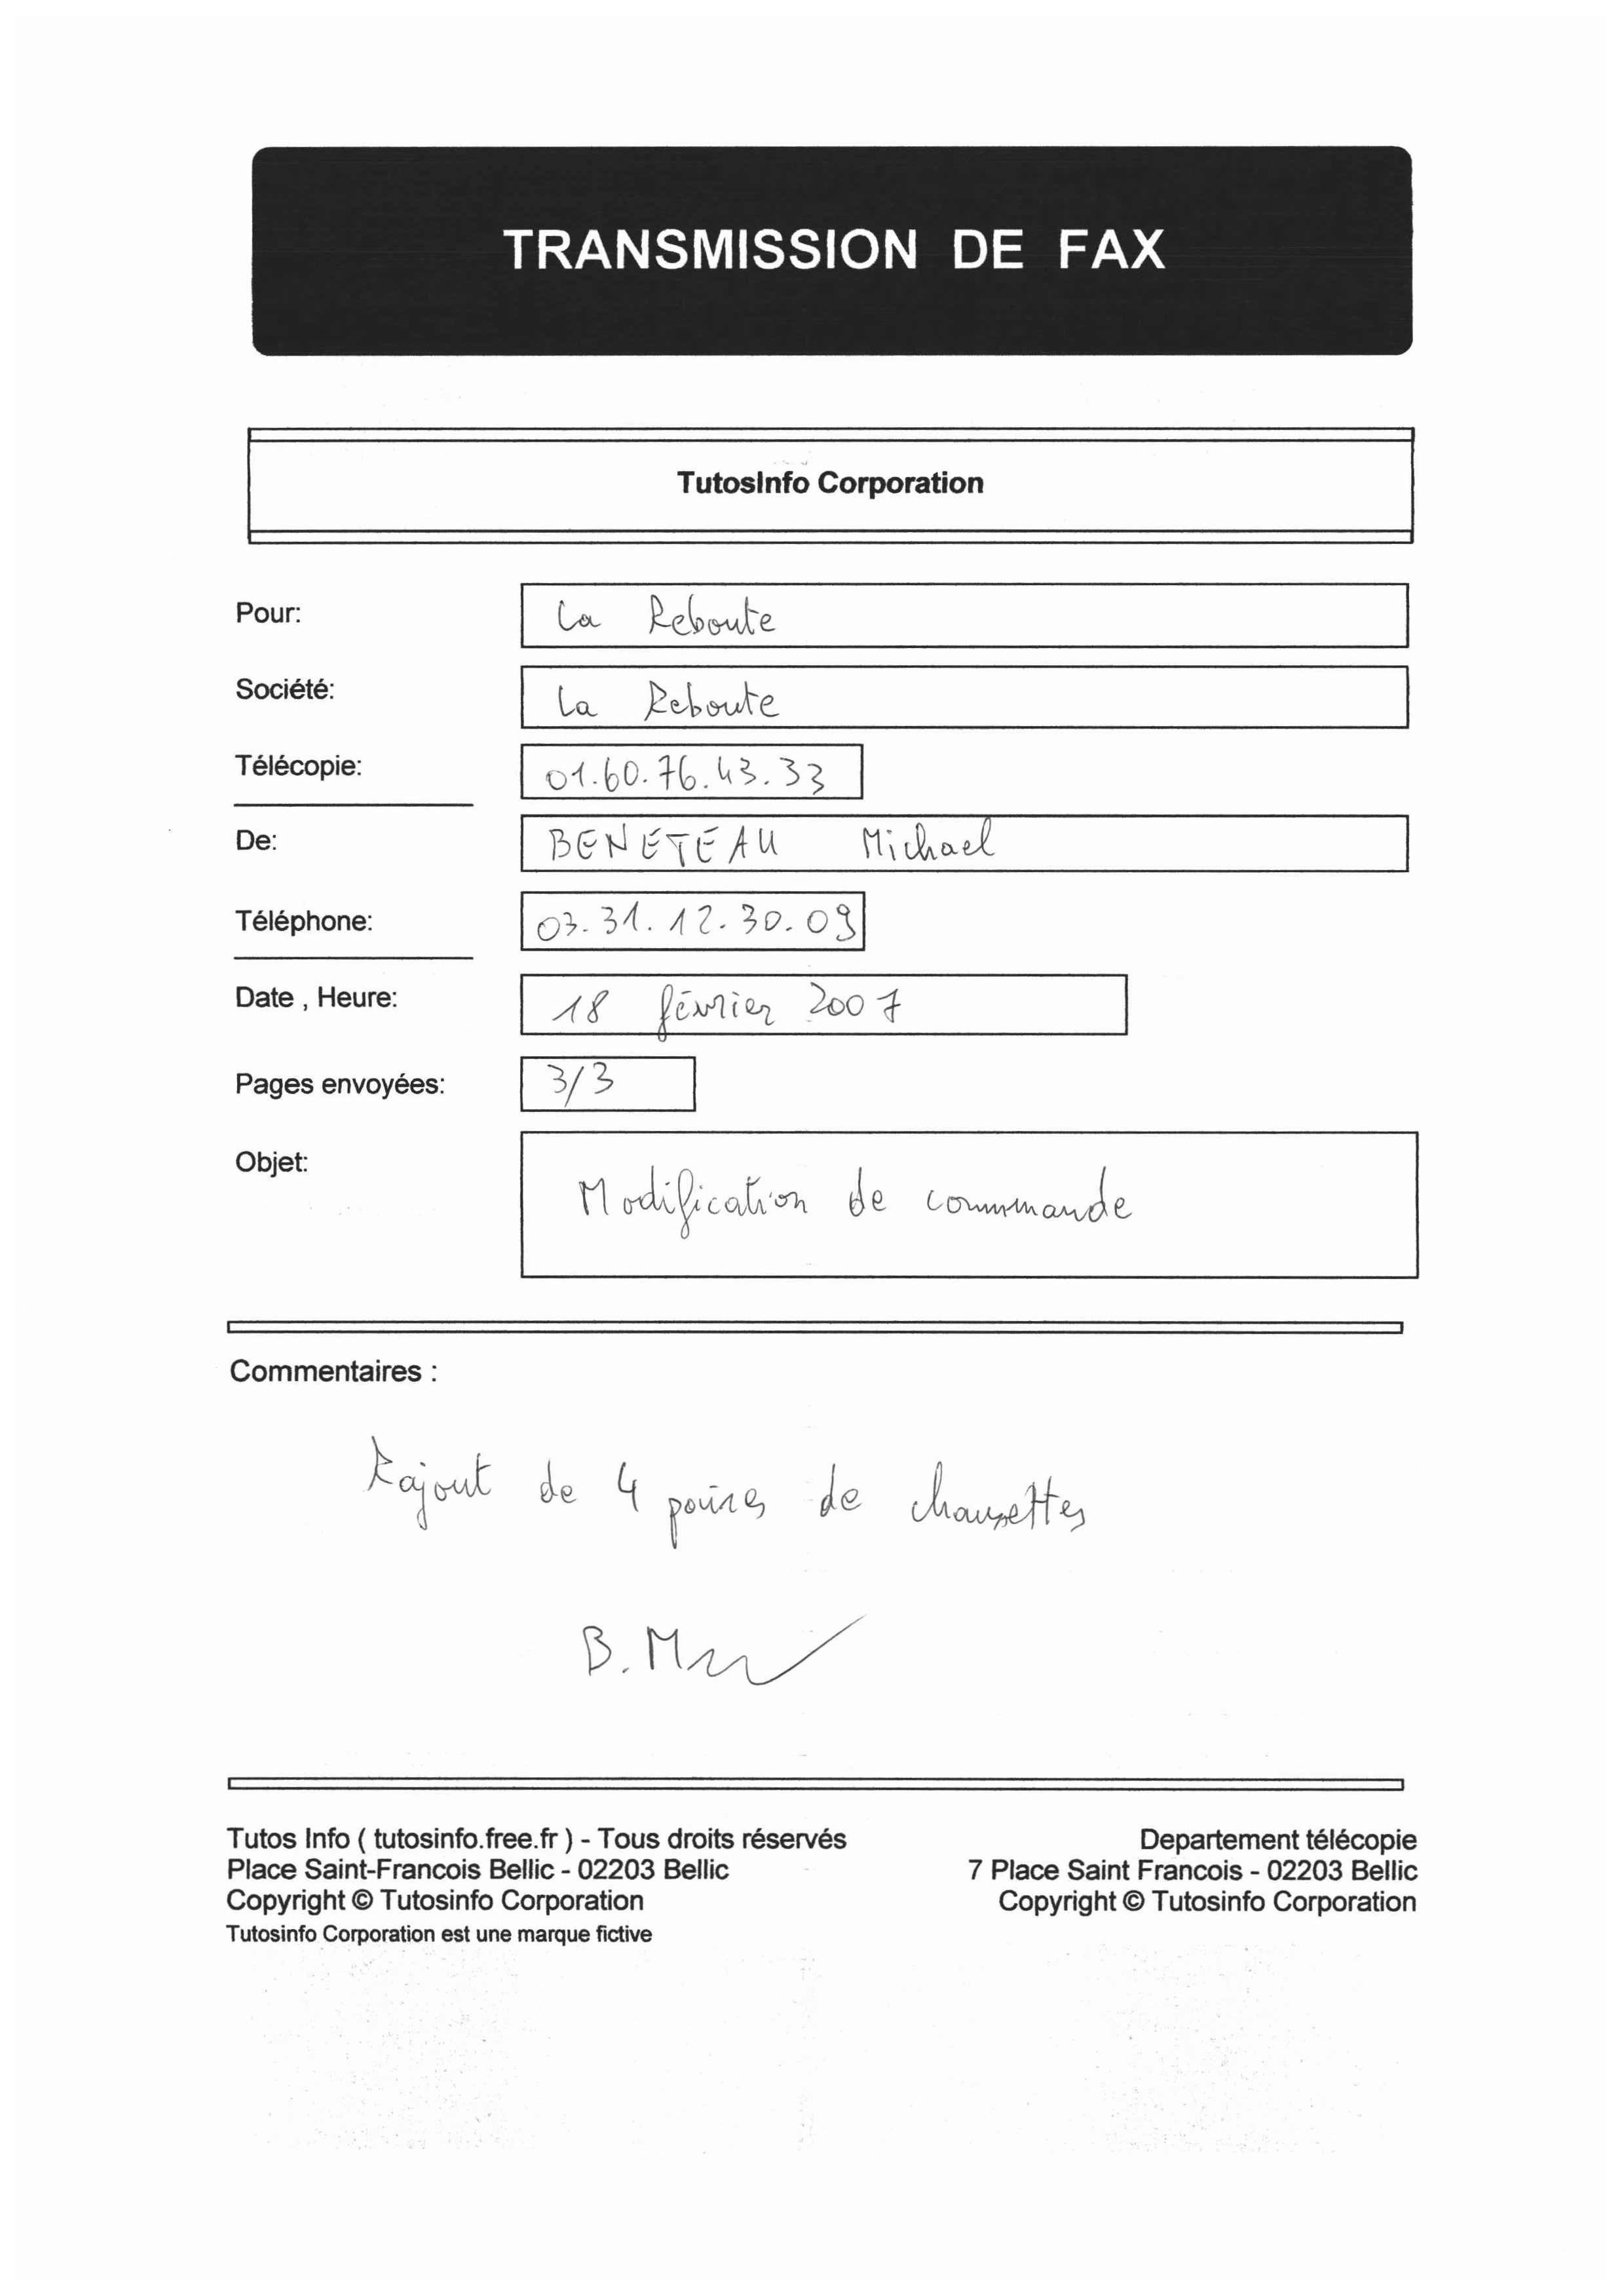 TRANSMISSION DE FAX
TutosInfo Corporation
Pour: La Reboute
Société: La Reboute
Télécopie: 01.60.76.43.33
De: BENETEAU Michael
Téléphone: 03.31.12.30.09
Date , Heure: 18 février 2007
Pages envoyées: 3/3
Objet: Modification de commande
Commentaires :
Rajout de 4 paires de chaussettes
B.M
Tutos Info ( tutosinfo.free.fr ) - Tous droits réservés
Place Saint-Francois Bellic - 02203 Bellic
Copyright © Tutosinfo Corporation
Tutosinfo Corporation est une marque fictive
Departement télécopie
7 Place Saint Francois - 02203 Bellic
Copyright © Tutosinfo Corporation